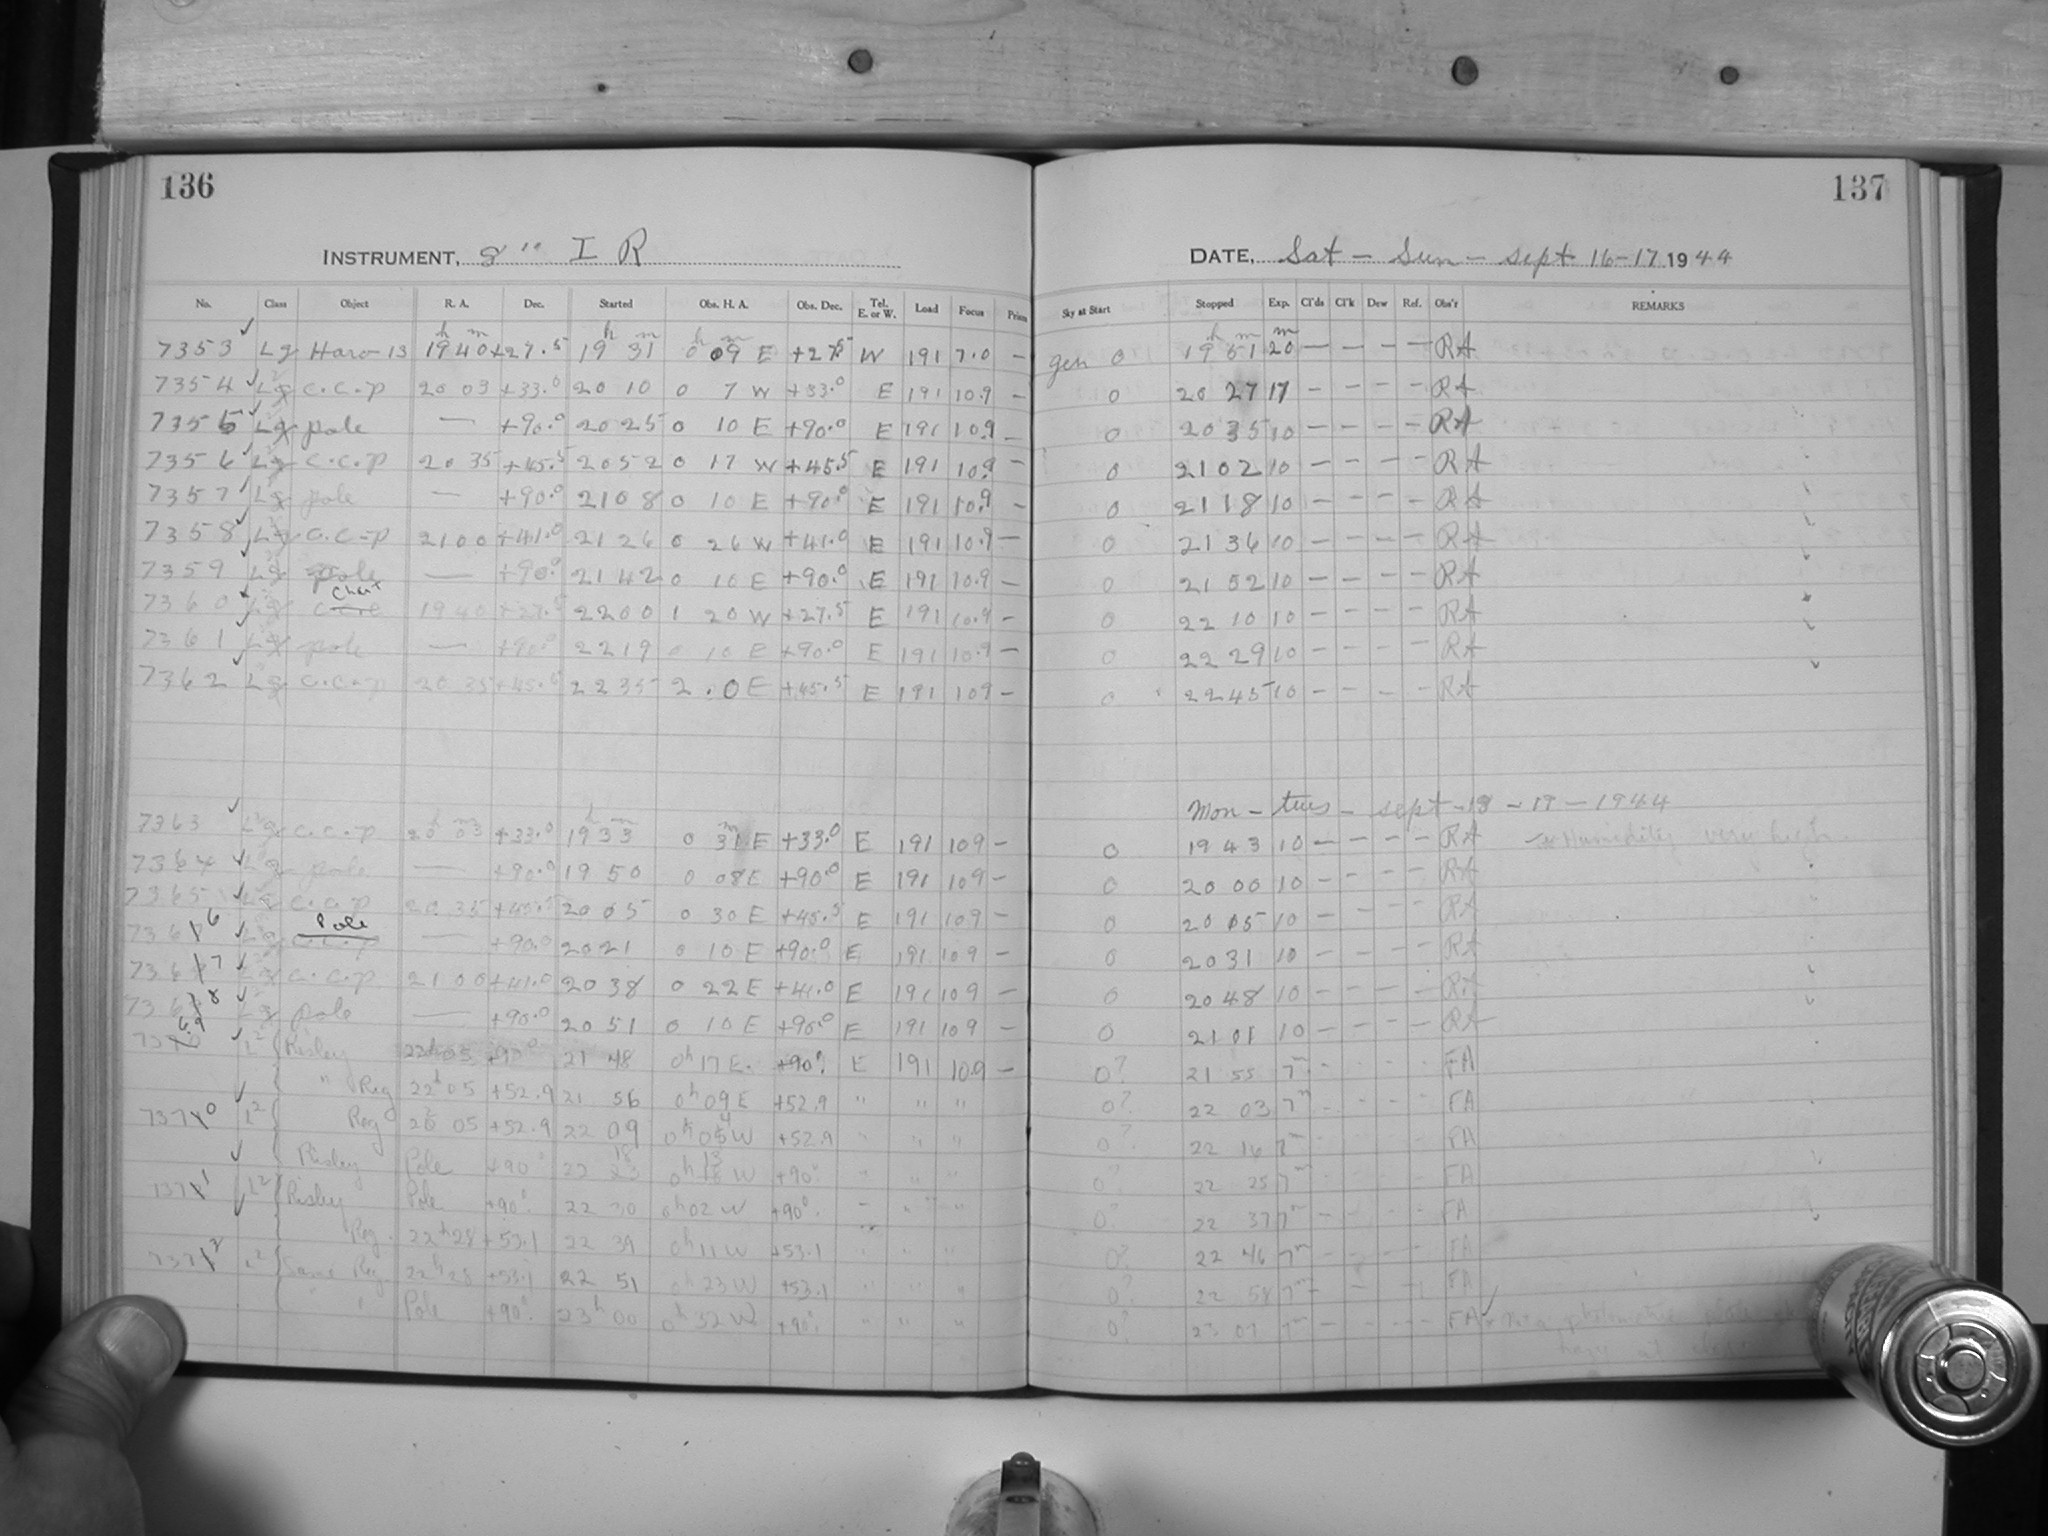 136
INSTRUMENT, 8" I R
No. Class Object R. A. Dec. Started Obs. H. A. Obs. Dec. Tel. E. or W. Load Focus Prism
7353 Lg Haro-13 19h 40m +27.5 19h 31m 0h 09m E +27.5 W 191 7.0 —
7354 Lg c.c.p 20 03 +33.0 20 10 0 7 W +33.0 E 191 10.9 —
7355 Lg pole — +90.0 20 25 0 10 E +90.0 E 191 10.9 —
7356 Lg c.c.p 20 35 +45.5 20 52 0 17 W +45.5 E 191 10.9 —
7357 Lg pole — +90.0 21 08 0 10 E +90.0 E 191 10.9 —
7358 Lg c.c.p 21 00 +41.0 21 26 0 26 W +41.0 E 191 10.9 —
7359 Lg pole — +90.0 21 42 0 10 E +90.0 E 191 10.9 —
7360 Lg 19 40 +27.5 22 00 1 20 W +27.5 E 191 10.9 —
7361 Lg pole — +90.0 22 19 0 10 E +90.0 E 191 10.9 —
7362 Lg c.c.p 20 35 +45.5 22 35 2.0 E +45.5 E 191 109 —
7363 c.c.p 20h 03m +33.0 19h 33m 0 31m E +33.0 E 191 109 —
7364 pole — +90.0 19 50 0 08 E +90.0 E 191 109 —
7365 c.c.p 20 35 +45.5 20 05 0 30 E +45.5 E 191 109 —
7366 Pole — +90.0 20 21 0 10 E +90.0 E 191 109 —
7367 c.c.p 21 00 +41.0 20 38 0 22 E +41.0 E 191 109 —
7368 pole — +90.0 20 51 0 10 E +90.0 E 191 109 —
L2 Risley +90° 21 48 0h 17 E +90° E 191 10.9 —
" Reg 22h 05 +52.9 21 56 0h 09 E +52.9 " " "
7370 L2 Reg 05 +52.9 22 09 W +52.9 " " "
Risley Pole +90° 22 18 W +90° " " "
7371 L2 Risley Pole +90° 22 30 0h 02 W +90° " " "
Reg. 22h 28 +53.1 22 39 0h 11 W +53.1 " " "
7372 L2 Same Reg 22h 28 +53.1 22 51 0h 23 W +53.1 " " "
Pole +90° 23h 00 0h 32 W +90° " " "
137
DATE, Sat — Sun — Sept 16-17 1944
Sky at Start Stopped Exp. Cl'ds Cl'k Dew Ref. Obs'r REMARKS
gen 0 19h 51m 20m — — — — RA
0 20 27 17 — — — — RA
0 20 35 10 — — — — RA
0 21 02 10 — — — — RA
0 21 18 10 — — — — RA
0 21 36 10 — — — — RA
0 21 52 10 — — — — RA
0 22 10 10 — — — — RA
0 22 29 10 — — — — RA
0 22 45 10 — — — — RA
Mon — tues — sept — 18 — 19 — 1944
0 19 43 10 — — — — RA Humidity very high
0 20 00 10 — — — — RA
0 20 05 10 — — — — RA
0 20 31 10 — — — — RA
0 20 48 10 — — — — RA
0 21 01 10 — — — — RA
0? 21 55 7m FA
0? 22 03 7m FA
0? 22 16 7m FA
0? 22 25 7m FA
0? 22 37 7m FA
0? 22 46 7m FA
0? 22 58 7m FA
0? 23 07 7m FA